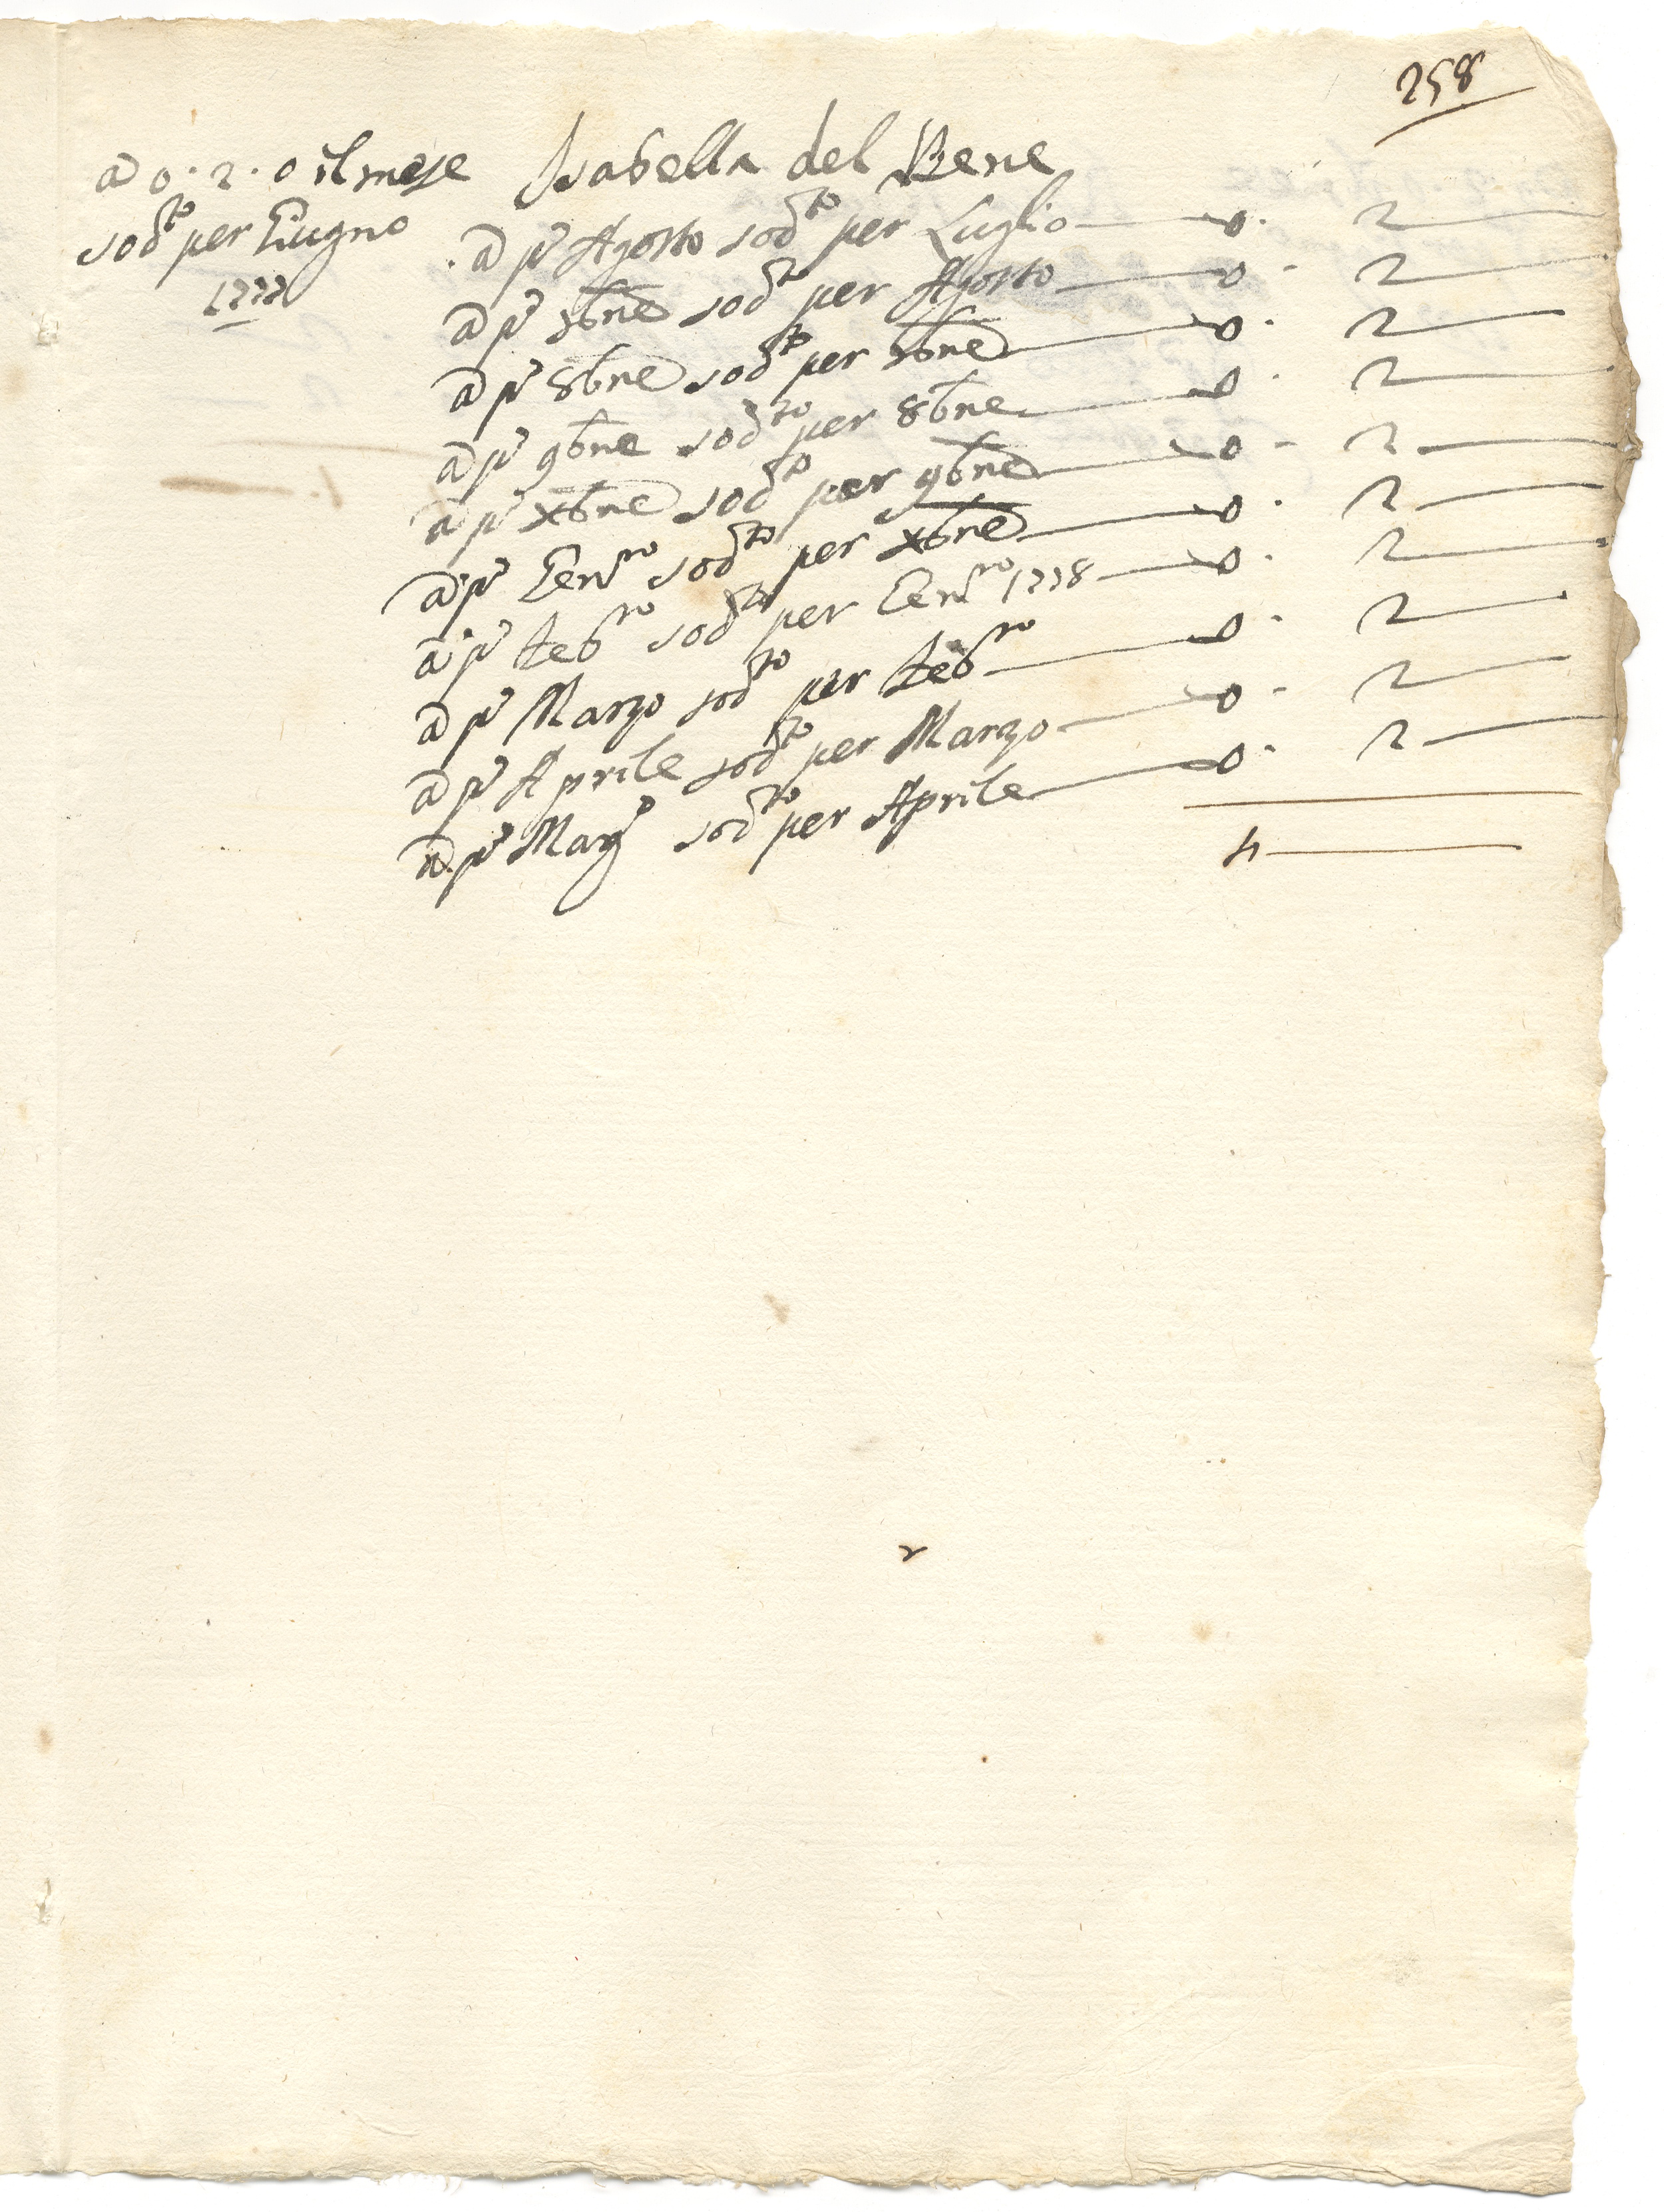 258
a 0. 2. 0 il mese Isabella del Bene
sodto per Giugno
1777
a pº Agosto sodto per Luglio — 0. 2 —
a pº 7bre sodto per Agosto — 0. 2 —
a pº 8bre sodto per 7bre — 0. 2 —
a pº 9bre sodto per 8bre — 0. 2 —
a pº Xbre sodto per 9bre — 0. 2 —
a pº Genro sodto per Xbre — 0. 2 —
a pº Febro sodto per Genro 1778 — 0. 2 —
a pº Marzo sodto per Febro — 0. 2 —
a pº Aprile sodto per Marzo — 0. 2 —
a pº Magº sodto per Aprile — 0. 2 —
4 —